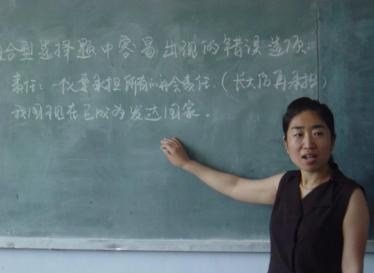 合型选择题中容易出现的错误选项:
责任:一定要承担所有的社会责任.(长大后再承担)
我国现在已成为发达国家.